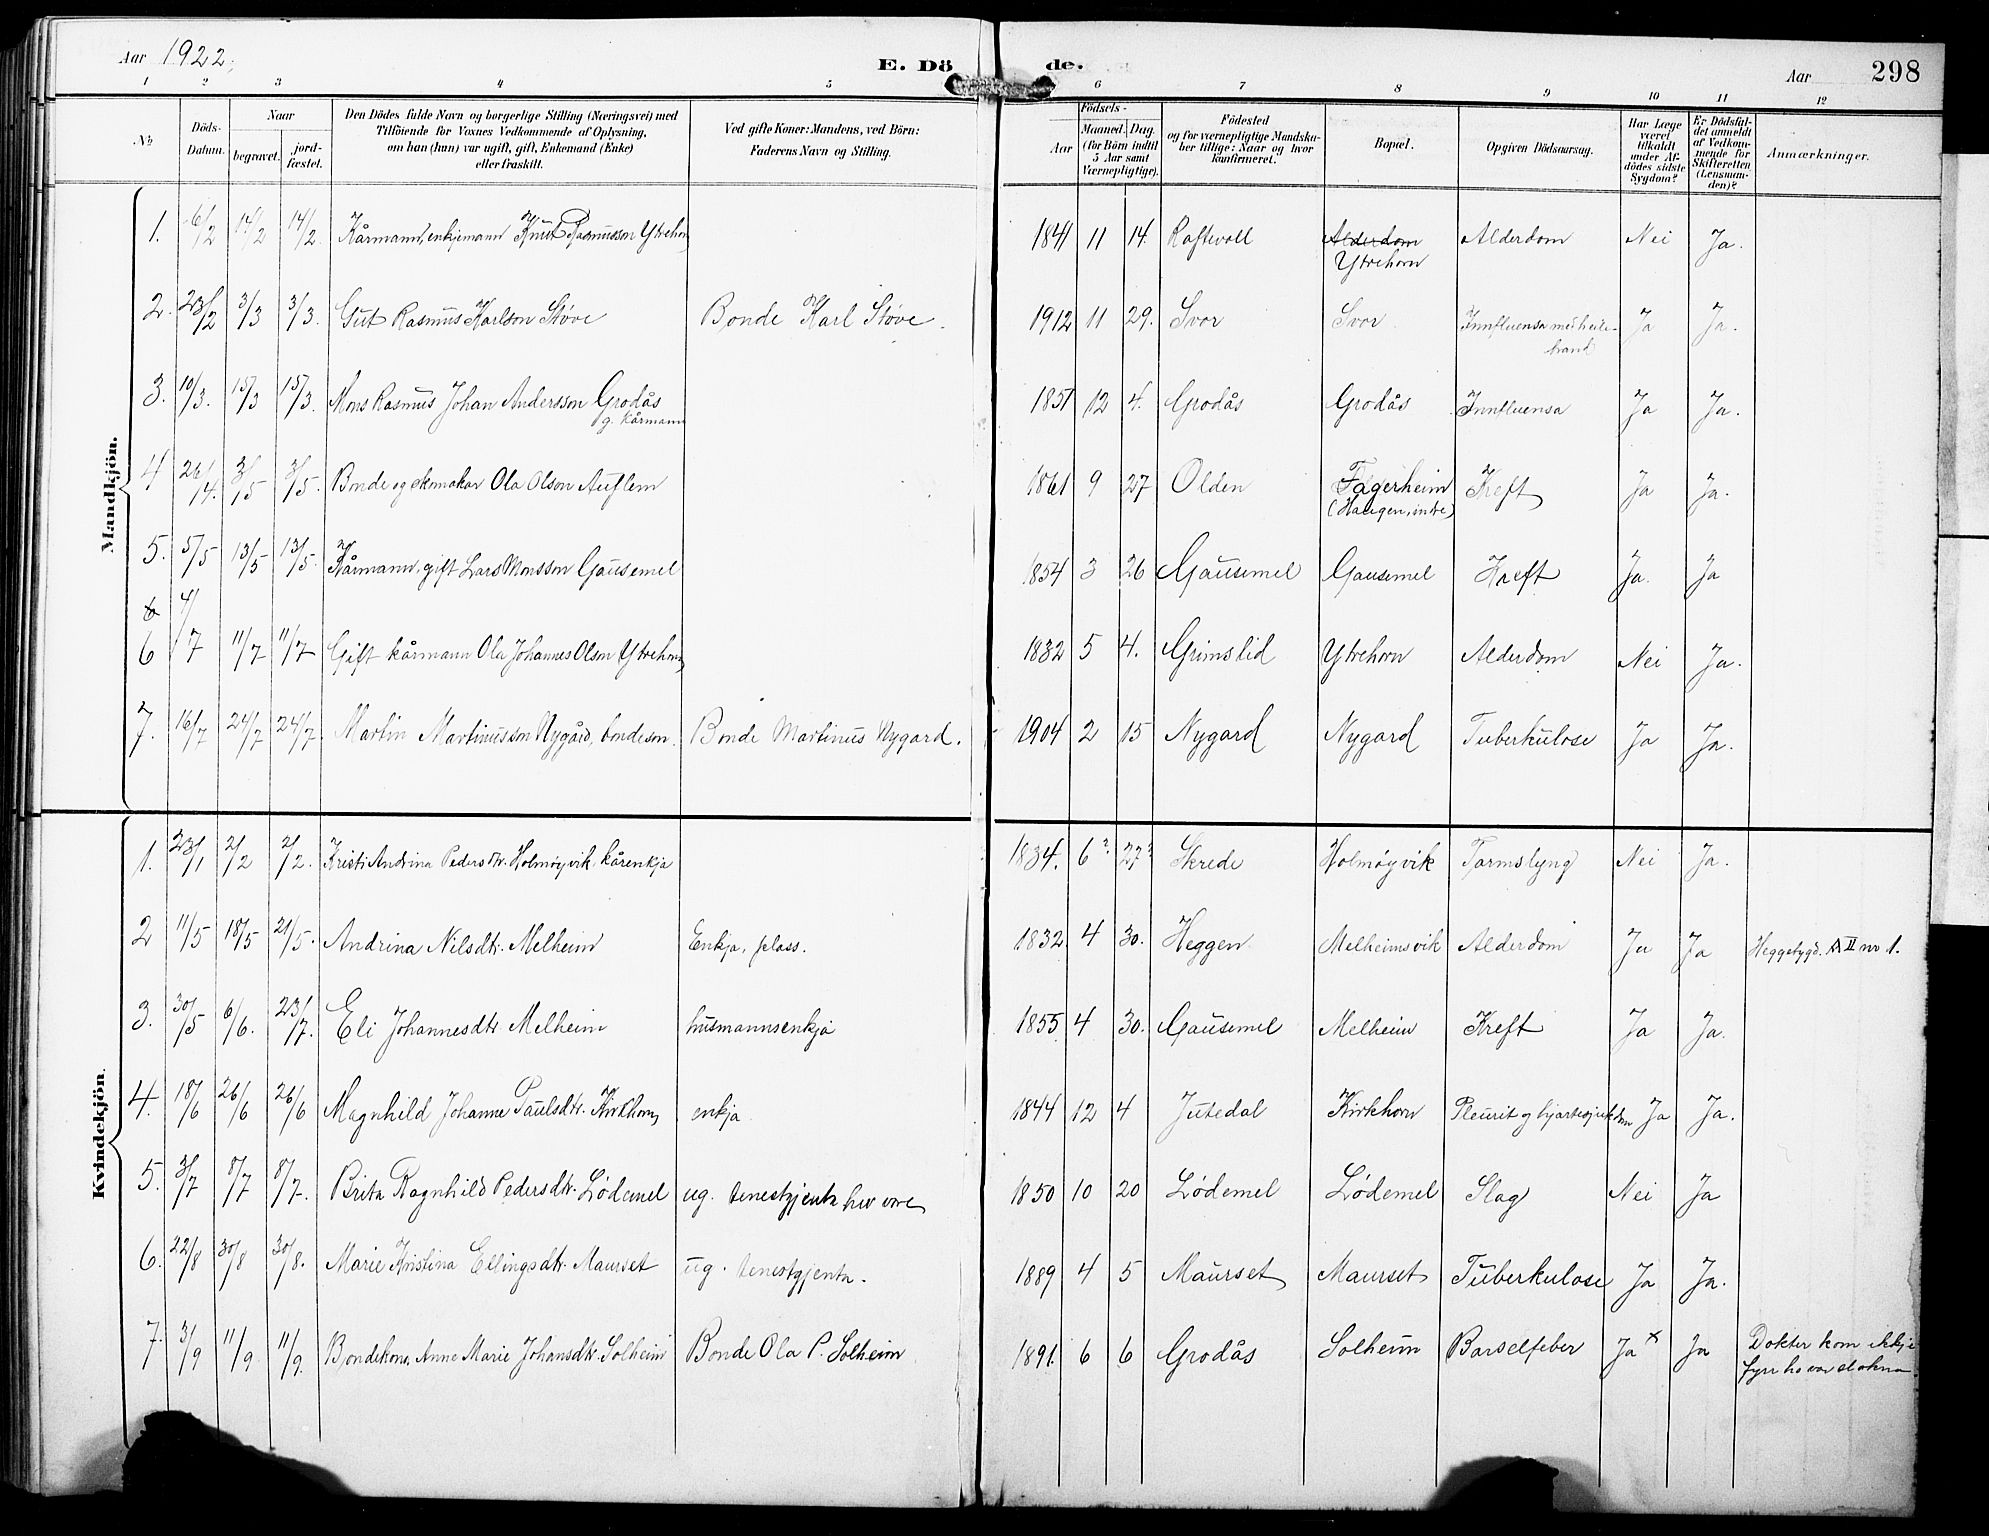 Aar 1922. E. Dö de. Aar 298
1 2 3 4 5 6 7 8 9 10 11 12
No.
Döds-
Datum.
Naar
begravet.
jord-
fæstet.
Den Dödes fulde Navn og borgerlige Stilling (Næringsvei) med
Tilföiende for Voxnes Vedkommende af Oplysning,
om han (hun) var ugift, gift, Enkemand (Enke)
eller fraskilt.
Ved gifte Koner: Mandens, ved Börn:
Faderens Navn og Stilling.
Födsels-
Aar
Maaned. Dag.
(for Börn indtil
5 Aar samt
Værnepligtige).
Födested
og for værnepligtige Mandska-
ber tillige: Naar og hvor
konfirmeret.
Bopæl.
Opgiven Dödsaarsag.
Har Læge
været
tilkaldt
under Af-
dödes sidste
Sygdom?
Er Dödsfal-
det anmeldt
af Vedkom-
mende for
Skifteretten
(Lensman-
den)?
Anmærkninger.
Mandkjön.
1. 6/2 14/2 14/2. Kårmann, enkjemann Knut Rasmusson Ytrehorn 1841 11 14. Raftevoll Alderdom Alderdom Nei Ja.
Ytrehorn
2. 23/2 3/3 3/3. Gut Rasmus Karlson Støve Bonde Karl Støve. 1912 11 29. Svor Svor Innfluensa med heile- Ja Ja.
brand
3. 10/3. 15/3 15/3. Mons Rasmus Johan Andersson Grodås 1851 12 4. Grodås Grodås Innfluensa Ja Ja.
g. kårmann
4 26/4. 3/5 3/5. Bonde og skomakar Ola Olson Auflem 1861 9 27 Olden Fagerheim Kreft Ja Ja.
(Haugen, indre)
5. 5/5 13/5 13/5. Kårmann, gift Lars Monsson Gausemel 1854 3 26 Gausemel Gausemel Kreft Ja. Ja
6
6 4/7 11/7 11/7 Gift kårmann Ola Johannes Olson Ytrehorn 1832 5 4. Grimstid Ytrehorn Alderdom Nei Ja.
7. 16/7 24/7 24/7. Martin Martinusson Nygård, bondeson. Bonde Martinus Nygard. 1904 2 15 Nygard Nygard Tuberkulose Ja Ja.
Kvindekjön.
1. 23/1 2/2 2/2. Kristi Andrina Pedersdtr. Holmøyvik, kårenkja 1834. 6? 27? Skrede Holmøyvik Tarmslyng Nei Ja.
2 11/5 18/5 21/5. Andrina Nilsdtr. Melheim Enkja, plass. 1832 4 30. Heggen Melheimsvik Alderdom Ja Ja Heggebygd. II nr 1.
3. 30/5 6/6. 23/7. Eli Johannesdtr Melheim husmannsenkja 1855 4 30. Gausemel Melheim Kreft Ja Ja.
4. 18/6 26/6 26/6 Magnhild Johanne Paulsdtr. Kirkhorn, enkja 1844 12 4 Jutedal Kirkhorn Pleurit og hjartesjukdom Ja Ja.
5. 3/7 8/7 8/7. Brita Ragnhild Pedersdtr. Lødemel ug. tenestgjenta hev vore 1850 10 20 Lødemel Lødemel Slag Nei Ja
6. 22/8 30/8 30/8. Marie Kristina Ellingsdtr. Maurset ug. tenestgjenta. 1889 4 5 Maurset Maurset Tuberkulose Ja Ja.
7. 3/9 11/9 11/9. Bondekona Anne Marie Johansdtr. Solheim Bonde Ola P. Solheim 1891. 6 6 Grodås Solheim Barselfeber Ja x Ja Dokter kom ikkje
fyrr ho var slokna.